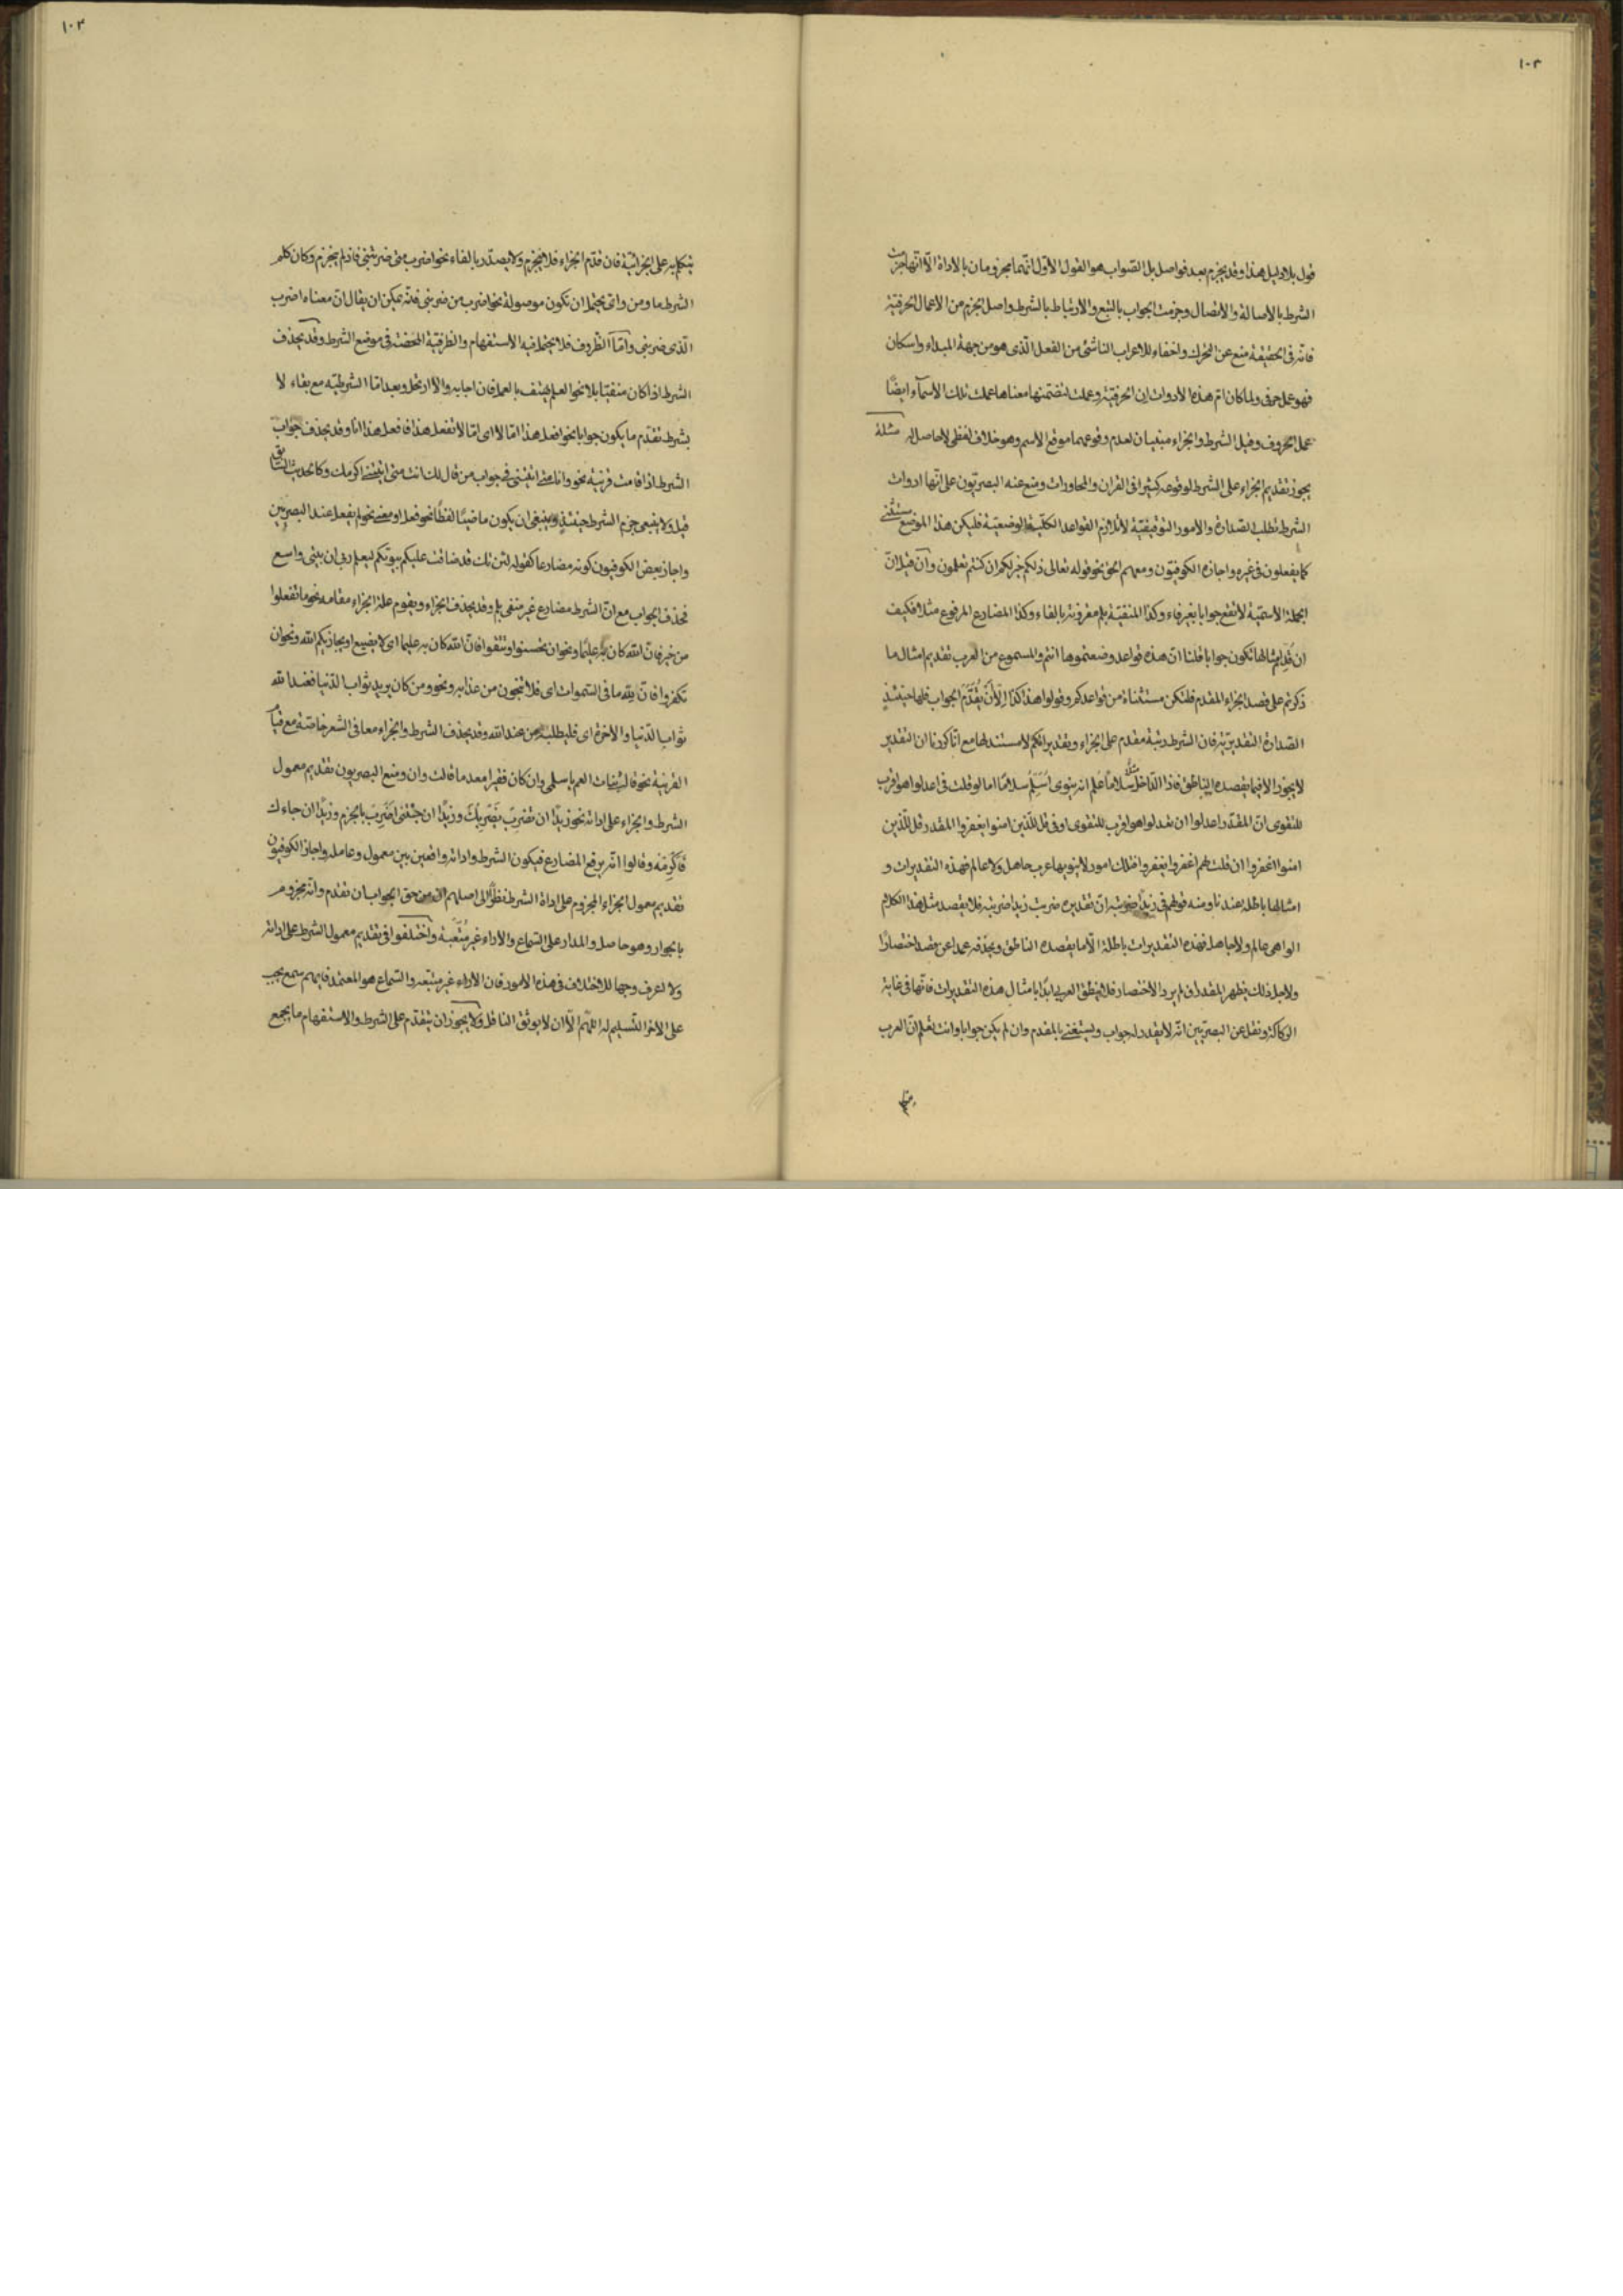 ١٠٣
قول بلا دليل هذا وقد يجزم بعد فواصل بل الصواب هو القول الاول انهما مجزومان بالاداة الا انها جزمت
الشرط بالاصالة والاتصال وجزمت الجواب بالتبع والارتباط بالشرط واصل الجزم من الاعمال الحرفية
فانه فى الحقيقة منع عن التحرك واخفاء للاعراب الناشئ من الفعل الذى هو من جهة المبداء واسكان
فهو عمل حرفى ولما كان ام هذه الادوات ان الحرفية وعملت لتضمنها معناها عملت تلك الاسماء ايضًا
عمل الحروف وقيل الشرط والجزاء مبنيان لعدم وقوعهما موقع الاسم وهو خلاف لفظى لا حاصل له مسئلة
يجوز تقديم الجزاء على الشرط لوقوعه كثيرا فى القران والمحاورات ومنع عنه البصريون على انها ادوات
الشرط تطلب الصدارة والامور التوقيفية لا تلازم القواعد الكلية الوضعية فليكن هذا الموضع مستثنى
كما يفعلون فى غيره واجازه الكوفيون ومعهم الحق نحو قوله تعالى ذلكم خير لكم ان كنتم تعلمون وان قيل ان
الجملة الاسمية لا تقع جوابا بغير فاء وكذا المنفية بلم مقرونة بالفاء وكذا المضارع المرفوع مثلا فكيف
ان قدم امثالها تكون جوابا قلنا ان هذه قواعد وضعتموها انتم والمسموع من العرب تقديم امثال ما
ذكرتم على قصد الجزاء المقدم فلتكن مستثناة من قواعدكم وقولوا هذا كذا الا ان يُقدَّم الجواب فلها حينئذٍ
الصدارة التقديرية فان الشرط رتبة مقدم على الجزاء وتقديراتكم لا مستند لها مع انا كررنا ان التقدير
لا يجوز الا فيما يقصده الناطق فاذا قال الداخل سلامًا علم انه ينوى اُسَلِّم سلامًا اما لو قلت فى اعدلوا هو اقرب
للتقوى ان المقدر اعدلوا ان تعدلوا هو اقرب للتقوى او فى قل للذين امنوا يغفروا المقدر قل للذين
امنوا اغفروا ان قلت لهم اغفروا يغفروا فتلك امور لا ينويها عرب جاهل ولا عالم فهذه التقديرات و
امثالها باطلة عندنا ومنه قولهم فى زيدًا ضربته ان تقديره ضربت زيدا ضربته فلا يقصد مثل هذا الكلام
الواهى عالم ولا جاهل فهذه التقديرات باطلة الا ما يقصده الناطق ويحذفه عمدا عن قصد اختصارًا
ولاجل ذلك يظهر المقدر ان لم يرد الاختصار فلا ينطق العربى ابدًا بامثال هذه التقديرات فانها فى غاية
الركاكة ونقل عن البصريين انه لا يقدر له جواب ويستغنى بالمقدم وان لم يكن جوابا وانت تعلم ان العرب
١٠٣
يتكلم به على الجزائية فان قدم الجزاء فلا يجزم ولا يصدر بالفاء نحو اضرب متى ضربتنى فاذا لم يجزم وكان كلم
الشرط ما ومن واى يحتمل ان تكون موصولة نحو اضرب من ضربنى فانه يمكن ان يقال ان معناه اضرب
الذى ضربنى واما الظروف فلا يحتمل فيه الاستفهام والظرفية المحضة فى موضع الشرط وقد يحذف
الشرط اذا كان منفيًا بلا نحو العلم يهتف بالعمل فان اجابه والا ارتحل وبعد اما الشرطية مع بقاء لا
بشرط تقدم ما يكون جوابا نحو افعل هذا اما لا اى اما لا تفعل هذا فافعل هذا وقد يحذف جواب
الشرط اذا قامت قرينة نحو وانا متى اتيتنى فى جواب من قال لك انت متى اتيتنى اكرمك وكالحديث السابق
قيل ولا ينبغى جزم الشرط حينئذٍ وينبغى ان يكون ماضيًا لفظًا نحو فعل او معنى نحو لم يفعل عند البصريين
واجاز بعض الكوفيون كونه مضارعا كقوله لئن تك قد ضاقت عليكم بيوتكم ليعلم ربى ان بيتى واسع
فحذف الجواب مع ان الشرط مضارع غير منفى بلم وقد يحذف الجزاء ويقوم علة الجزاء مقامه نحو ما تفعلوا
من خير فان الله كان به عليمًا ونحو ان تحسنوا وتتقوا فان الله كان به عليما اى لا يضيع او يجازيكم الله ونحو ان
تكفروا فان لله ما فى السموات اى فلا تنجون من عذابه ونحو ومن كان يريد ثواب الدنيا فعند الله
ثواب الدنيا والاخرة اى فليطلبه من عند الله وقد يحذف الشرط والجزاء معا فى الشعر خاصة مع قيام
القرينة نحو قالت بنات العم يا سلمى وان كان فقيرا معدما قالت وان ومنع البصريون تقديم معمول
الشرط والجزاء على اداته نحو زيدًا ان تضرب يَضْرِبْكَ وزيدًا ان جئتنى اَضْرِبْ بالجزم وزيدًا ان جاءك
فَاَكْرِمْه وقالوا انه يرفع المضارع فيكون الشرط واداته واقعين بين معمول وعامله واجاز الكوفيون
تقديم معمول الجزاء المجزوم على اداة الشرط نظرًا الى اصلهم ان من حق الجواب ان تقدم وانه مجزوم
بالجوار وهو حاصل والمدار على السماع والاراء غير مُتَّبَعة واختلفوا فى تقديم معمول الشرط على اداته
ولا اعرف وجها للاختلاف فى هذه الامور فان الاراء غير متبعه والسماع هو المعتمد فايهم سمع يجب
على الاخر التسليم له اللهم الا ان لا يوثق الناقل ولا يجوز ان يتقدم على الشرط والاستفهام ما يجمع